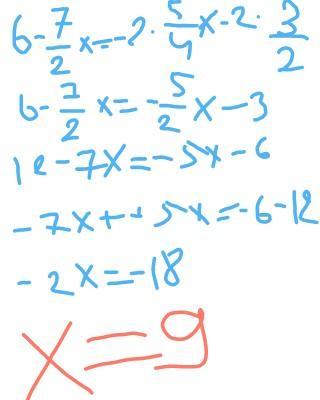 6-7/2 x=-2·5/4x-2·3/2
6-7/2 x=-5/2 x-3
12-7x=-5x-6
-7x++5x=-6-12
-2x=-18
x=9